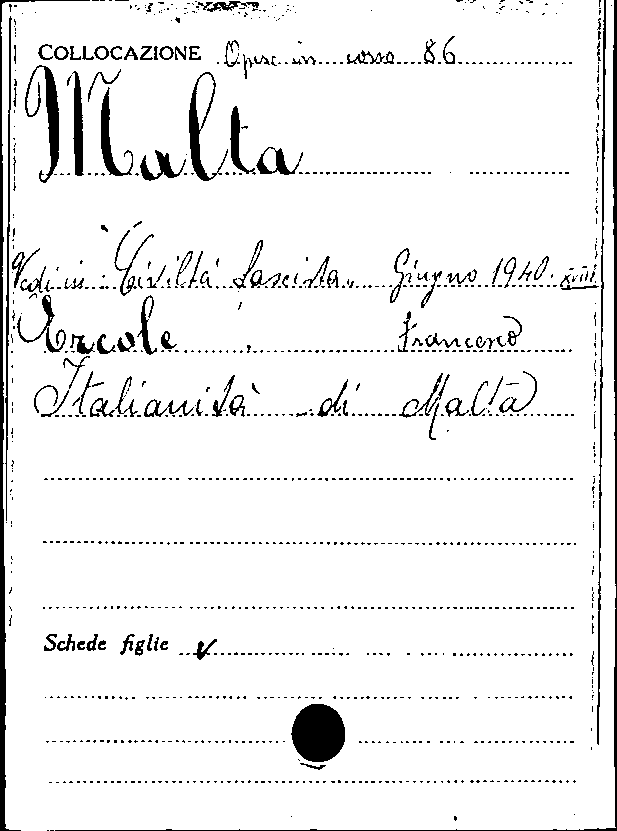 COLLOCAZIONE Opere in corso 86
Malta
Vedi in: "Civiltà Fascista" Giugno 1940. XVIII
Ercole Francesco
Italianità di Malta
Schede figlie ✓